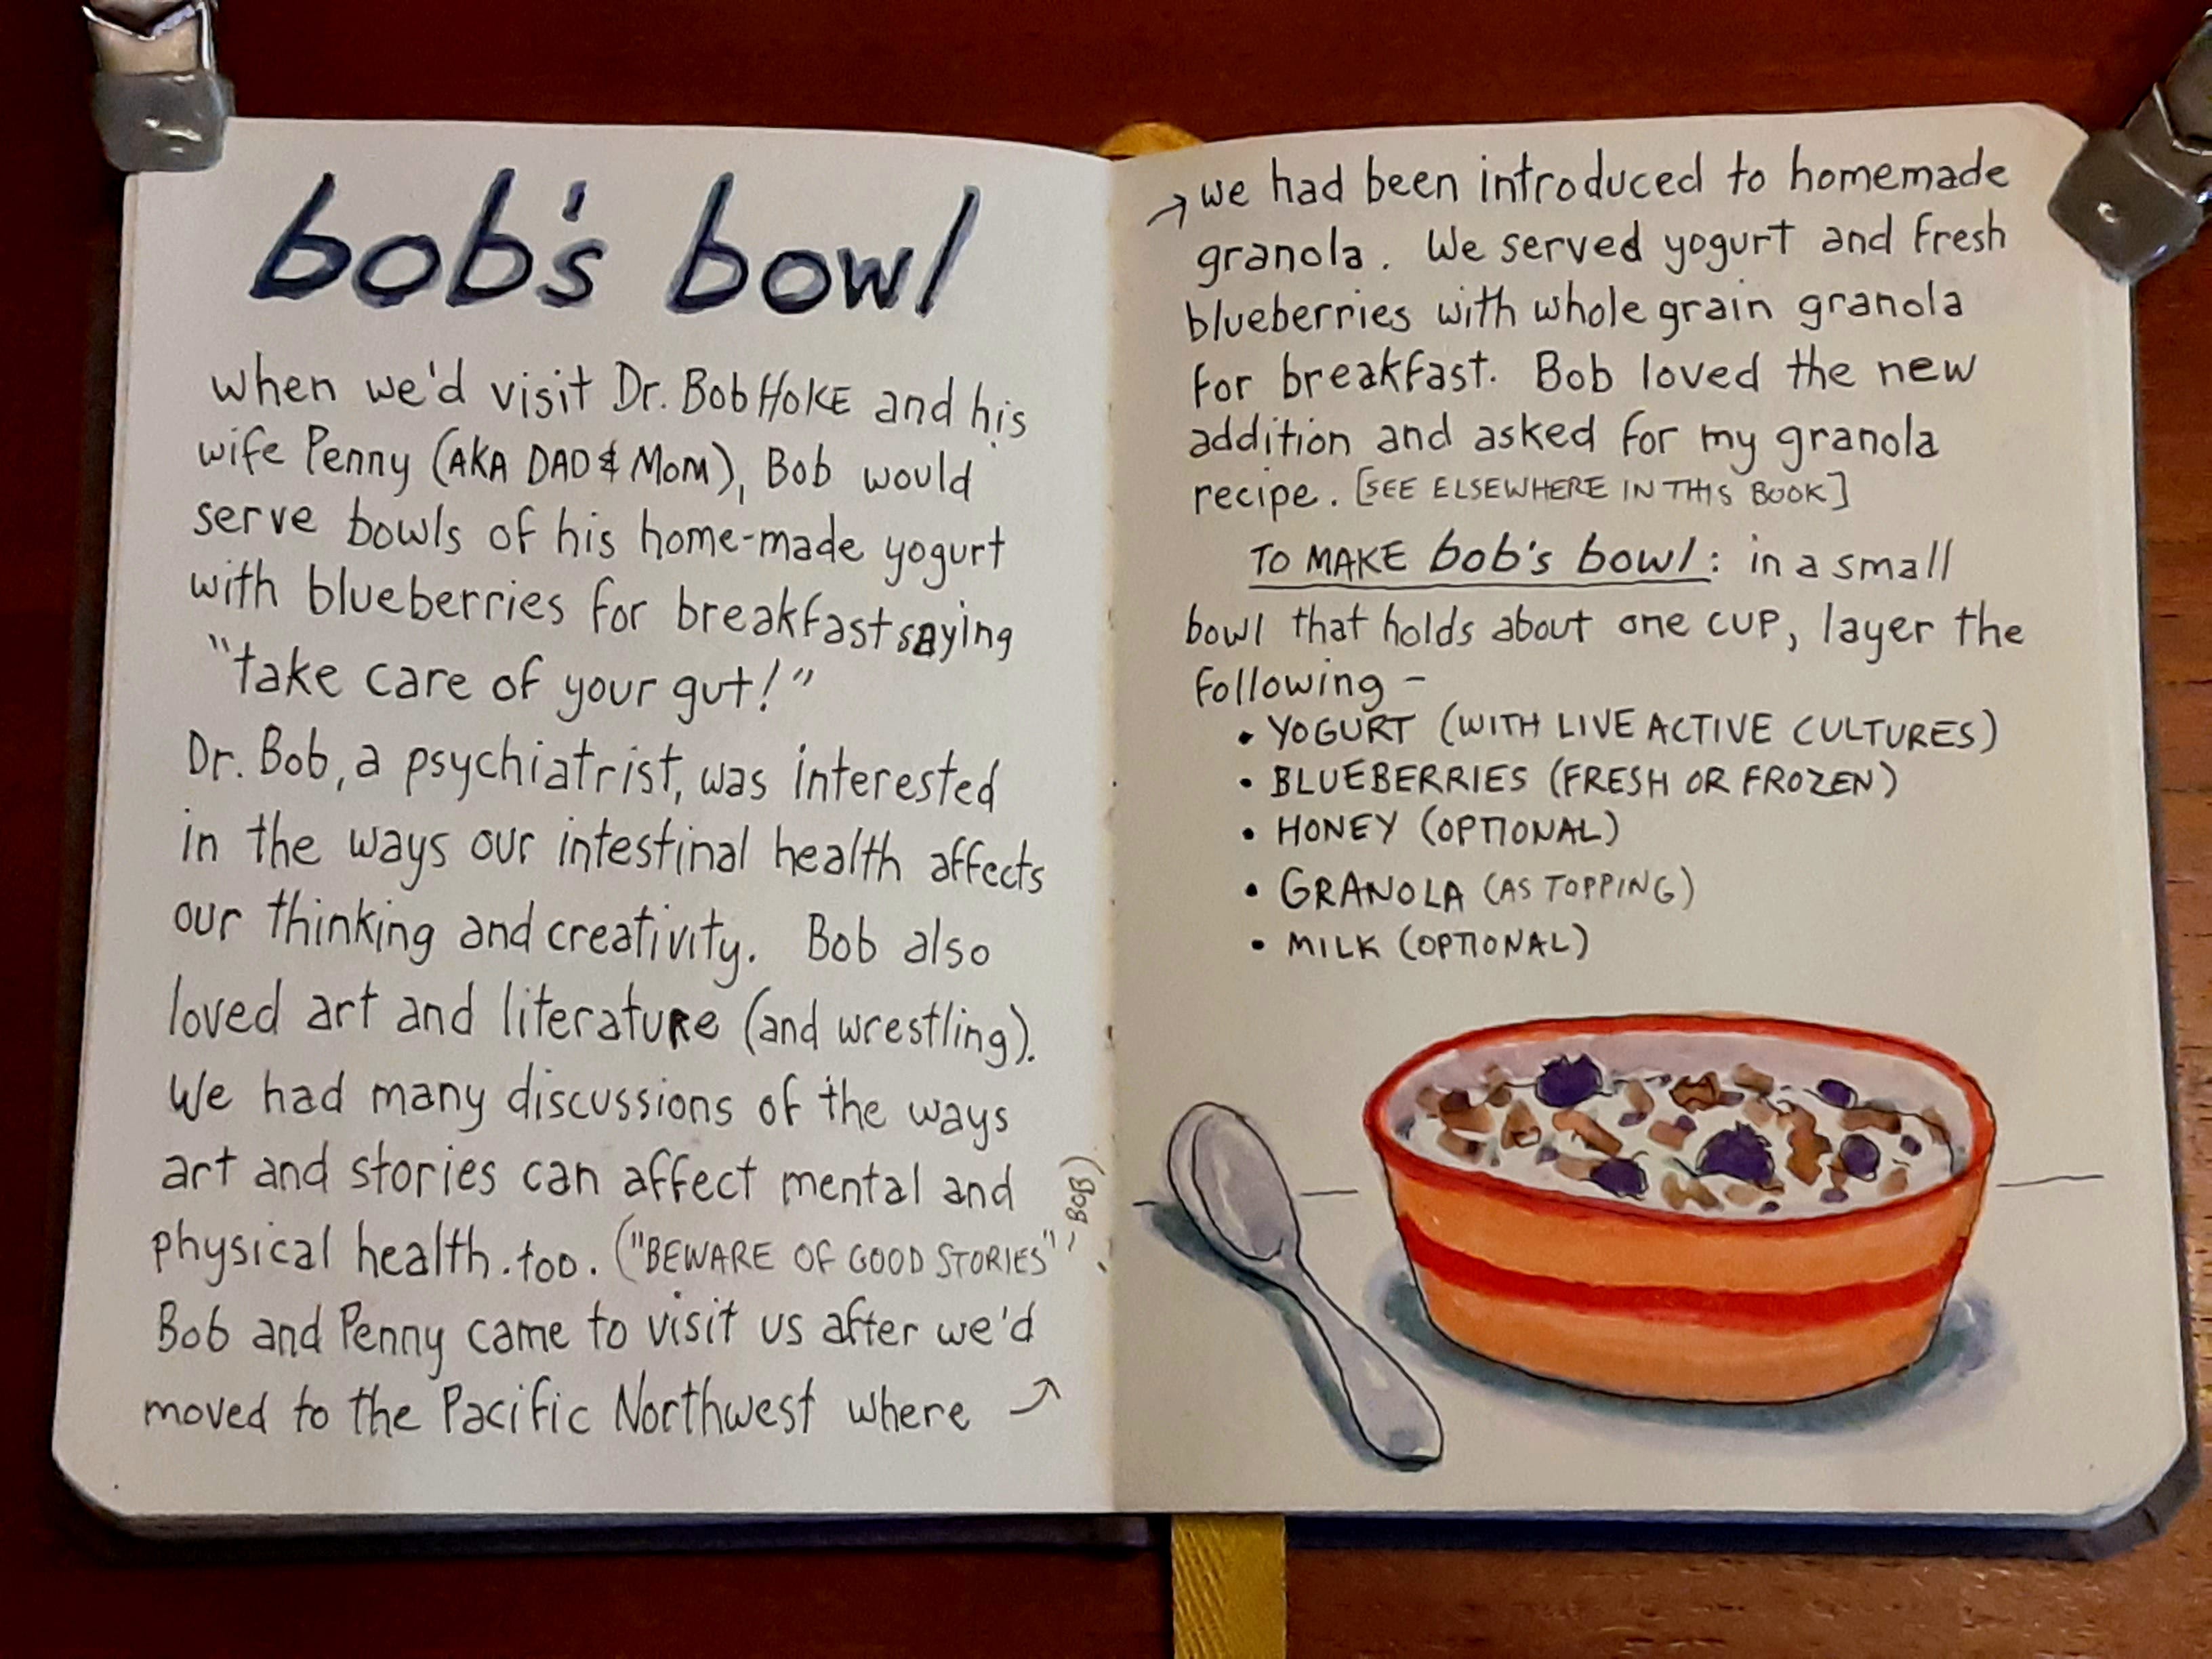 bob's bowl
when we'd visit Dr. Bob HOKE and his
wife Penny (AKA DAD & MOM), Bob would
serve bowls of his home-made yogurt
with blueberries for breakfast saying
"take care of your gut!"
Dr. Bob, a psychiatrist, was interested
in the ways our intestinal health affects
our thinking and creativity. Bob also
loved art and literature (and wrestling).
We had many discussions of the ways
art and stories can affect mental and
physical health. too. ("BEWARE OF GOOD STORIES" - BOB)
Bob and Penny came to visit us after we'd
moved to the Pacific Northwest where ↗
→ we had been introduced to homemade
granola. We served yogurt and fresh
blueberries with whole grain granola
for breakfast. Bob loved the new
addition and asked for my granola
recipe. [SEE ELSEWHERE IN THIS BOOK]
TO MAKE bob's bowl: in a small
bowl that holds about one cup, layer the
following -
• YOGURT (WITH LIVE ACTIVE CULTURES)
• BLUEBERRIES (FRESH OR FROZEN)
• HONEY (OPTIONAL)
• GRANOLA (AS TOPPING)
• MILK (OPTIONAL)